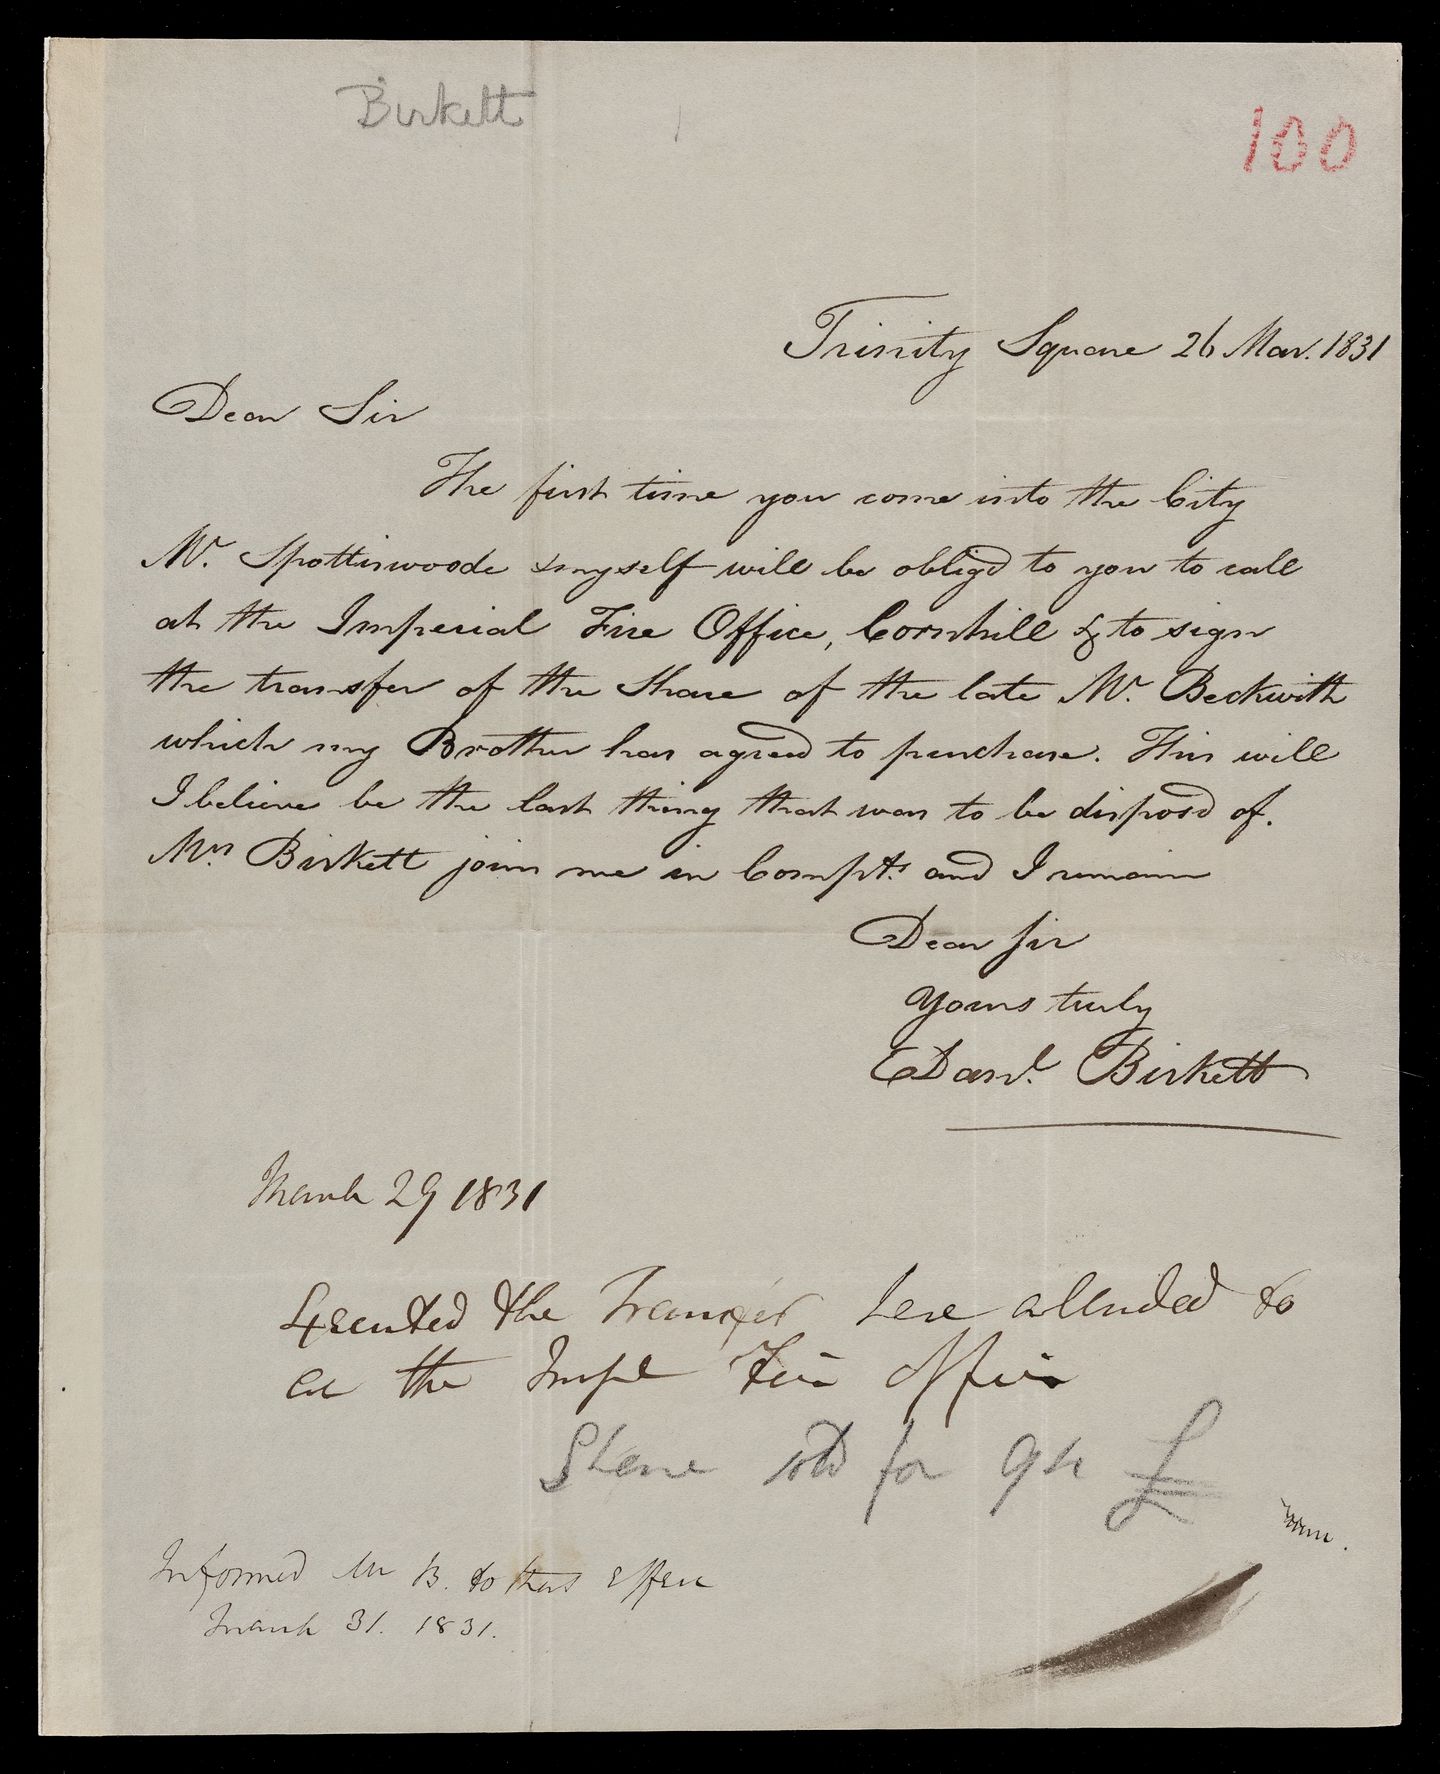 Birkett
100
Trinity Square 26 Mar. 1831
Dear Sir
The first time you come into the City
Mr. Spottiswoode & myself will be obligd to you to call
at the Imperial Fire Office, Cornhill & to sign
the transfer of the Share of the late Mr. Beckwith
which my Brother has agreed to purchase. This will
I believe be the last thing that was to be disposd of.
Mrs Birkett joins me in Compts. and I remain
Dear Sir
Yours truly
Danl. Birkett
March 29 1831
Executed the Transfer here alluded to
at the Impl Fire Office
Share sold for 94 £
Informed Mr B. to that effect
March 31. 1831.